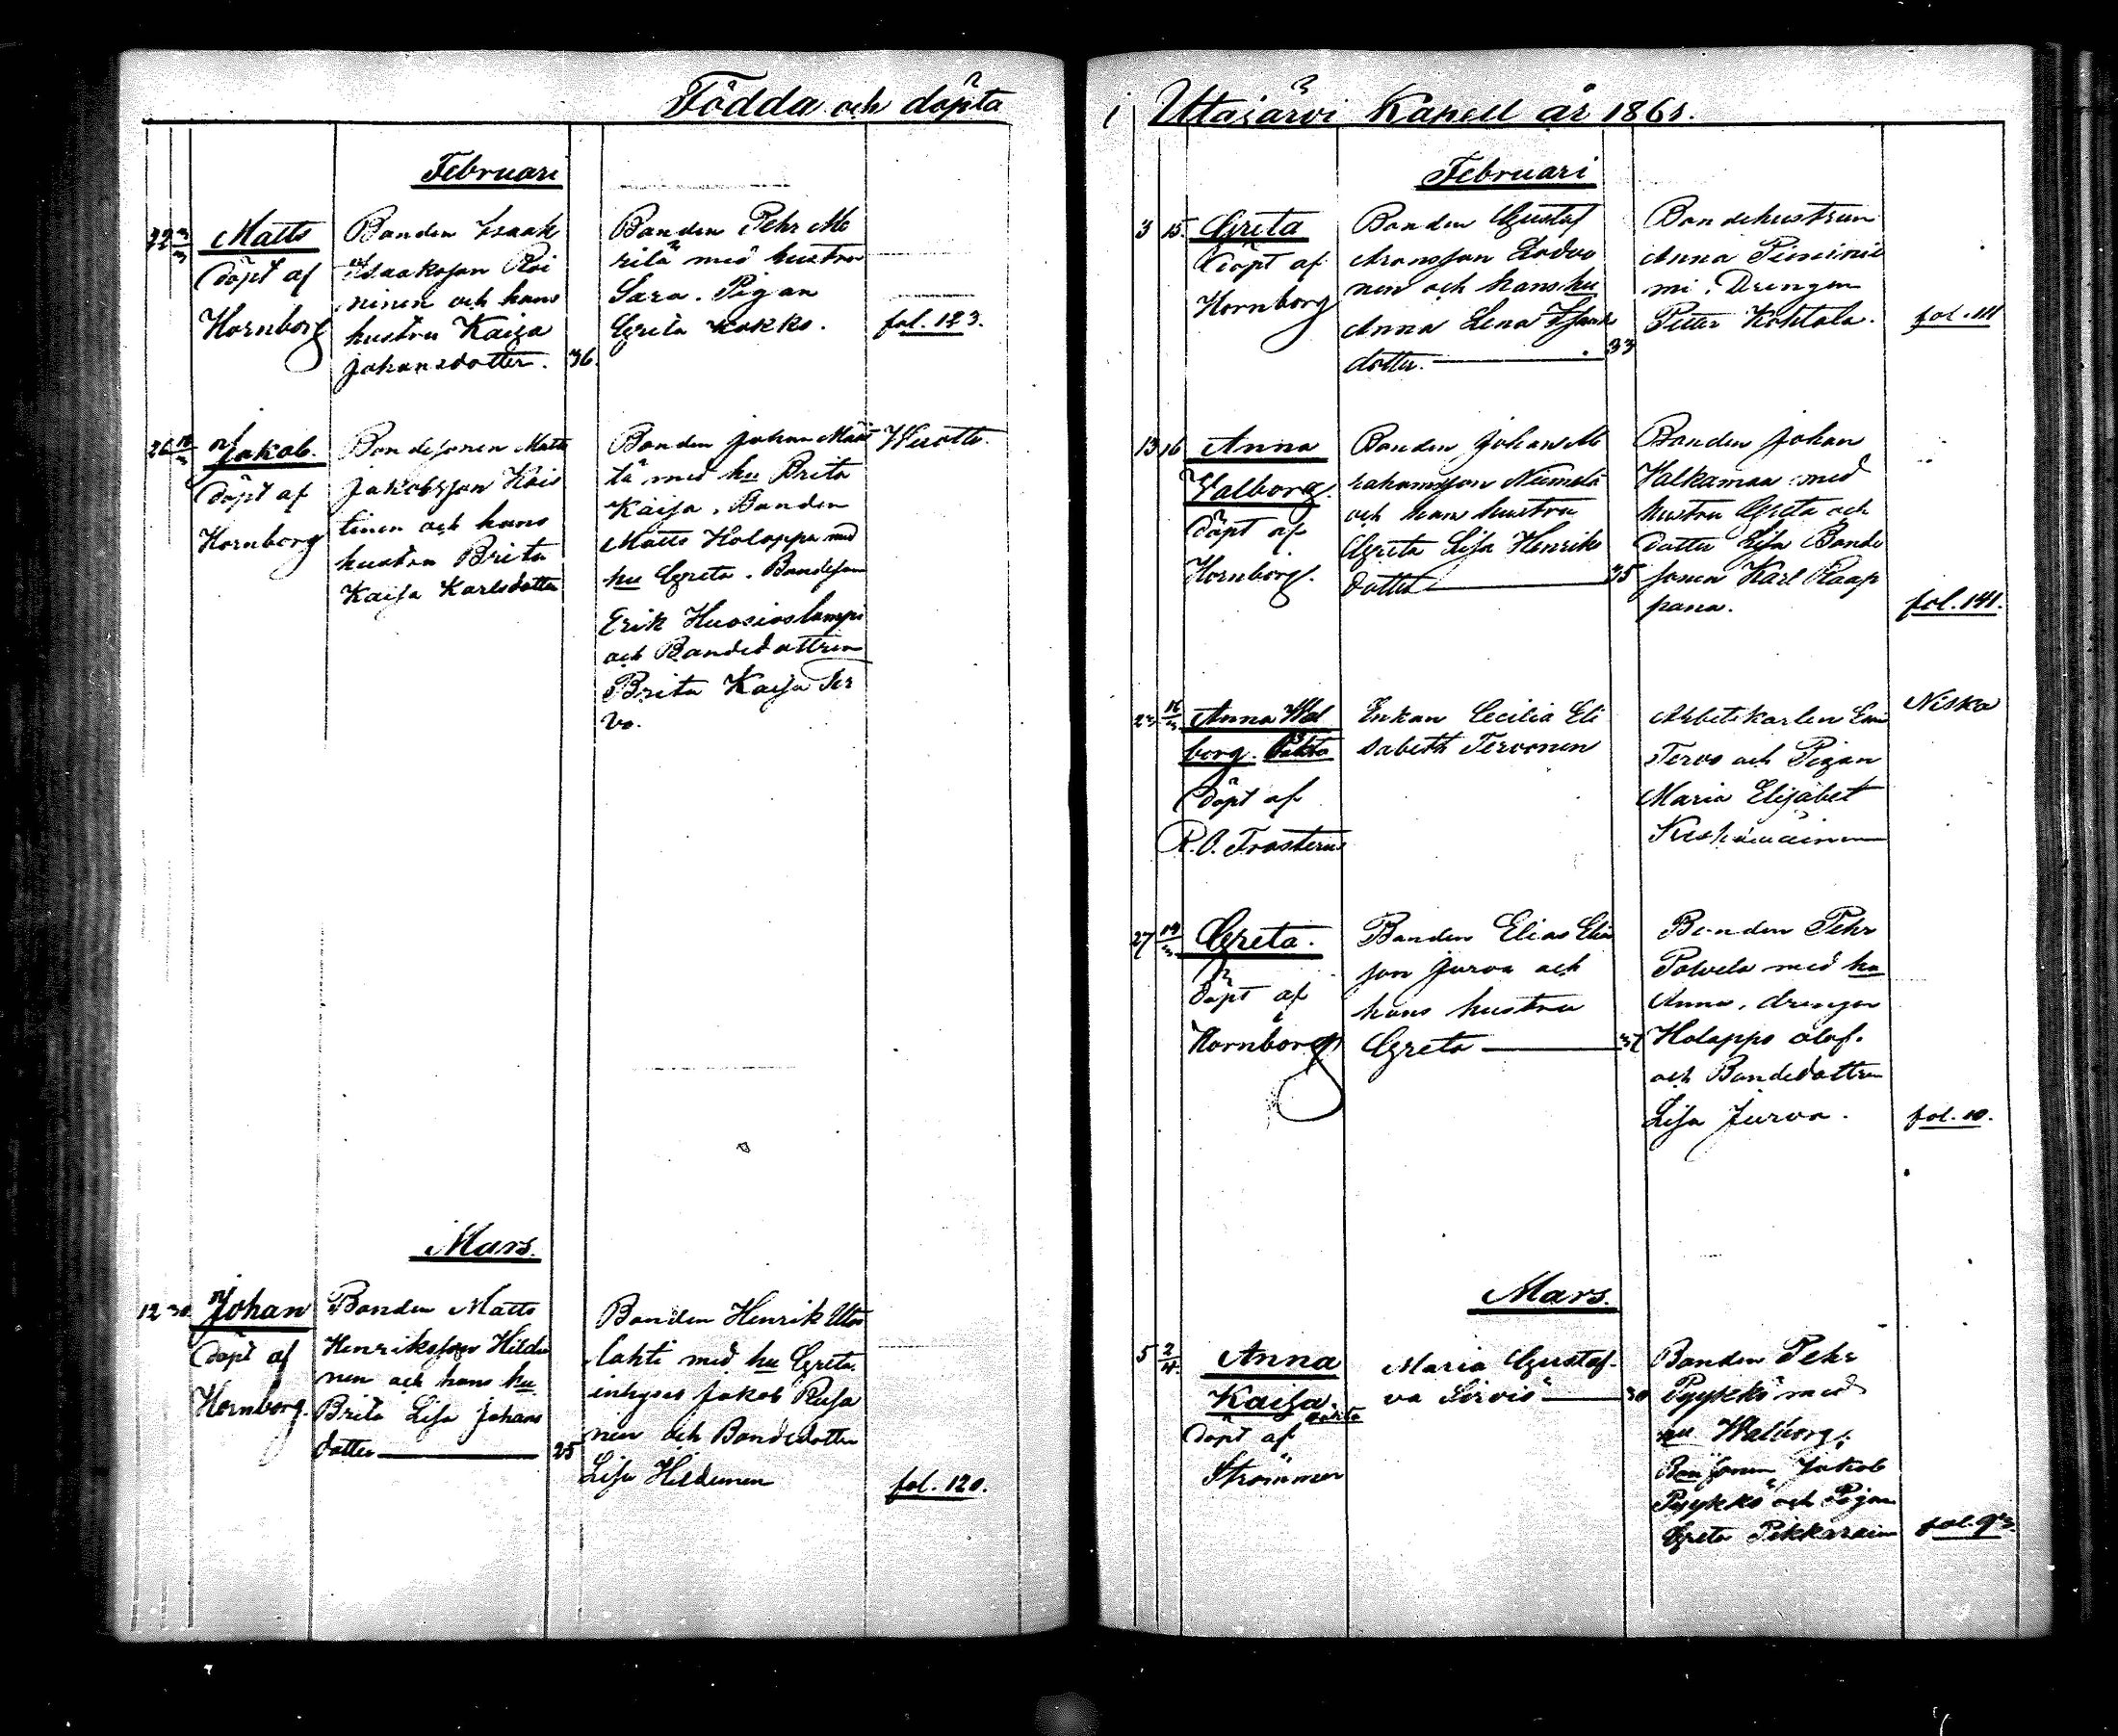 Födda och döpta
Februari
22 3/3 Matts
döpt af
Hornborg
Bonden Isaak
Isaaksson Roi
ninen och hans
hustru Kaisa
Johansdotter. 36.
Bonden Pehr Me
rilä med hustru
Sara. Pigan
Greta Kokko.
fol. 123.
Jakob.
döpt af
Hornborg
Bondesonen Matts
Jakobsson Kois
tinen och hans
hustru Brita
Kaisa Karlsdotter
Bonden Johan
tä med hu Brita
Kaisa. Bonden
Matts Holappa med
hu Greta. Bondeson
Erik Huosioslampi
och Bondedottren
Brita Kaisa Ter
vo.
Wuotto.
Mars.
12 30. Johan
döpt af
Hornborg.
Bonden Matts
Henriksson Hildu
nen och hans hu
Brita Lisa Johans
dotter 25
Bonden Henrik Utos
lahti med hu Greta.
inhyses Jakob
nen och Bondedotter
Lisa Hildunen
fol. 120.
i Utajärvi Kapell år 1865.
Februari
3 15. Greta
döpt af
Hornborg
Bonden Gustaf
Aronsson
nen och hans hu
Anna Lena Isaaks
dotter. 33
Bondehustrun
Anna Piminie
mi. Drengen
Petter Kohtala.
fol. 111
13 16 Anna
Walborg.
döpt af
Hornborg.
Bonden Johan Ab
rahamsson Niemelä
och hans hustru
Greta Lisa Henriks
dotter 35
Bonden Johan
Walkamaa med
hustru Greta och
dotter Lisa Bonde
sonen Karl Raap
pana.
fol. 141.
23 16/3 Anna Wal
borg. Oäkta
döpt af
R. O. Frosterus
Enkan Cecilia Eli
sabeth Tervonen
Arbetskarlen
Tervo och Pigan
Maria Elisabet
Niska
27 19/3 Greta.
döpt af
Hornborg
Bonden Elias Elia
son Jurva och
hans hustru
Greta
Bonden Pehr
Polvela med hu
Anna. drengen
Holappa Olof.
och Bondedottren
Lisa Jurva.
fol. 10.
Mars.
5 2/4. Anna
Kaisa. oäkta
döpt af
Strömmer
Maria Gustaf-
va Sirviö 30
Bonden Pehr
Pyykkö med
hu Walborg,
Bondsonen Jakob
Pyykkö och Pigan
Greta Pikkarain
fol. 93.